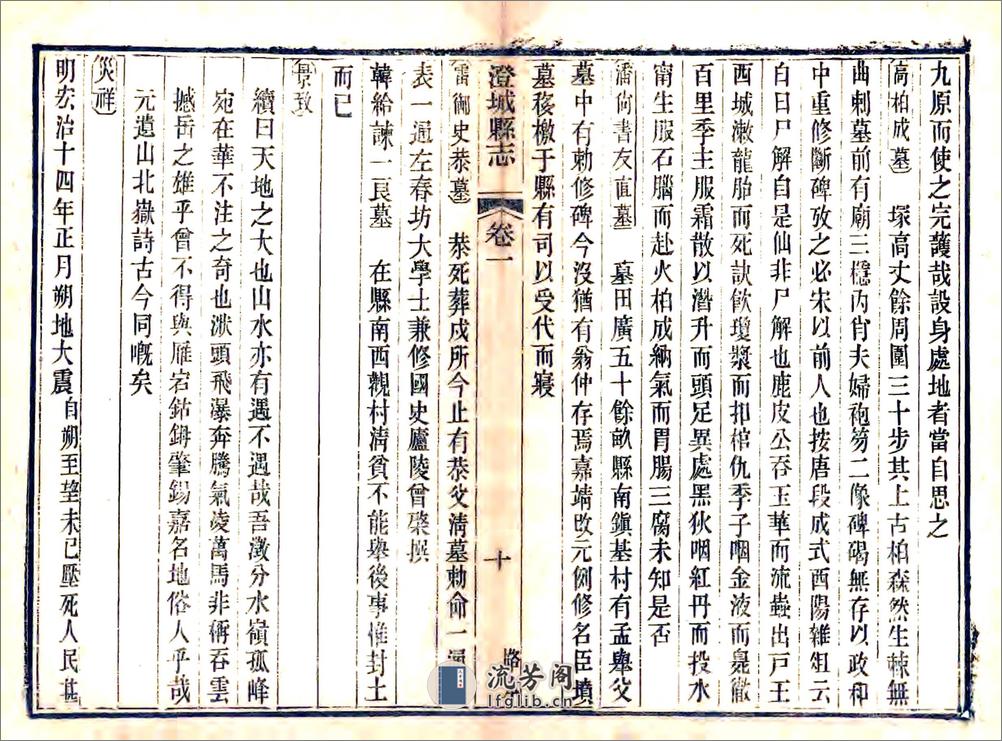 九原而使之完護哉設身處地者當自思之
高柏成墓　塚高丈餘周圍三十步其上古柏森然生棘無
曲刺墓前有廟三穩內肖夫婦袍笏二像碑碣無存以政和
中重修斷碑攷之必宋以前人也按唐段成式酉陽雜俎云
白日尸解自是仙非尸解也鹿皮公吞玉華而流蟲出戶王
西城漱龍胎而死訣飲瓊漿而扣棺仇季子咽金液而臭徹
百里季主服霜散以潛升而頭足異處黑狄咽紅丹而投水
甯生服石腦而赴火柏成納氣而胃腸三腐未知是否
潘尙書友直墓　墓田廣五十餘畝縣南鎭基村有孟舉父
墓中有勅修碑今沒猶有翁仲存焉嘉靖改元例修名臣墳
墓移檄于縣有司以受代而寢
澄城縣志　卷一　十
雷御史恭墓　恭死葬戍所今止有恭父淸墓勅命一通
表一通左春坊大學士兼修國史廬陵曾棨撰
韓給諫一良墓　在縣南西觀村淸貧不能舉後事惟封土
而已
景致
續曰天地之大也山水亦有遇不遇哉吾澂分水嶺孤峰
宛在華不注之奇也洑頭飛瀑奔騰氣凌萬馬非稱吞雲
撼岳之雄乎曾不得與雁宕鈷鉧肇錫嘉名地俗人乎哉
元遺山北嶽詩古今同嘅矣
災祥
明宏治十四年正月朔地大震自朔至望未已壓死人民甚
流芳閣
lfglib.cn